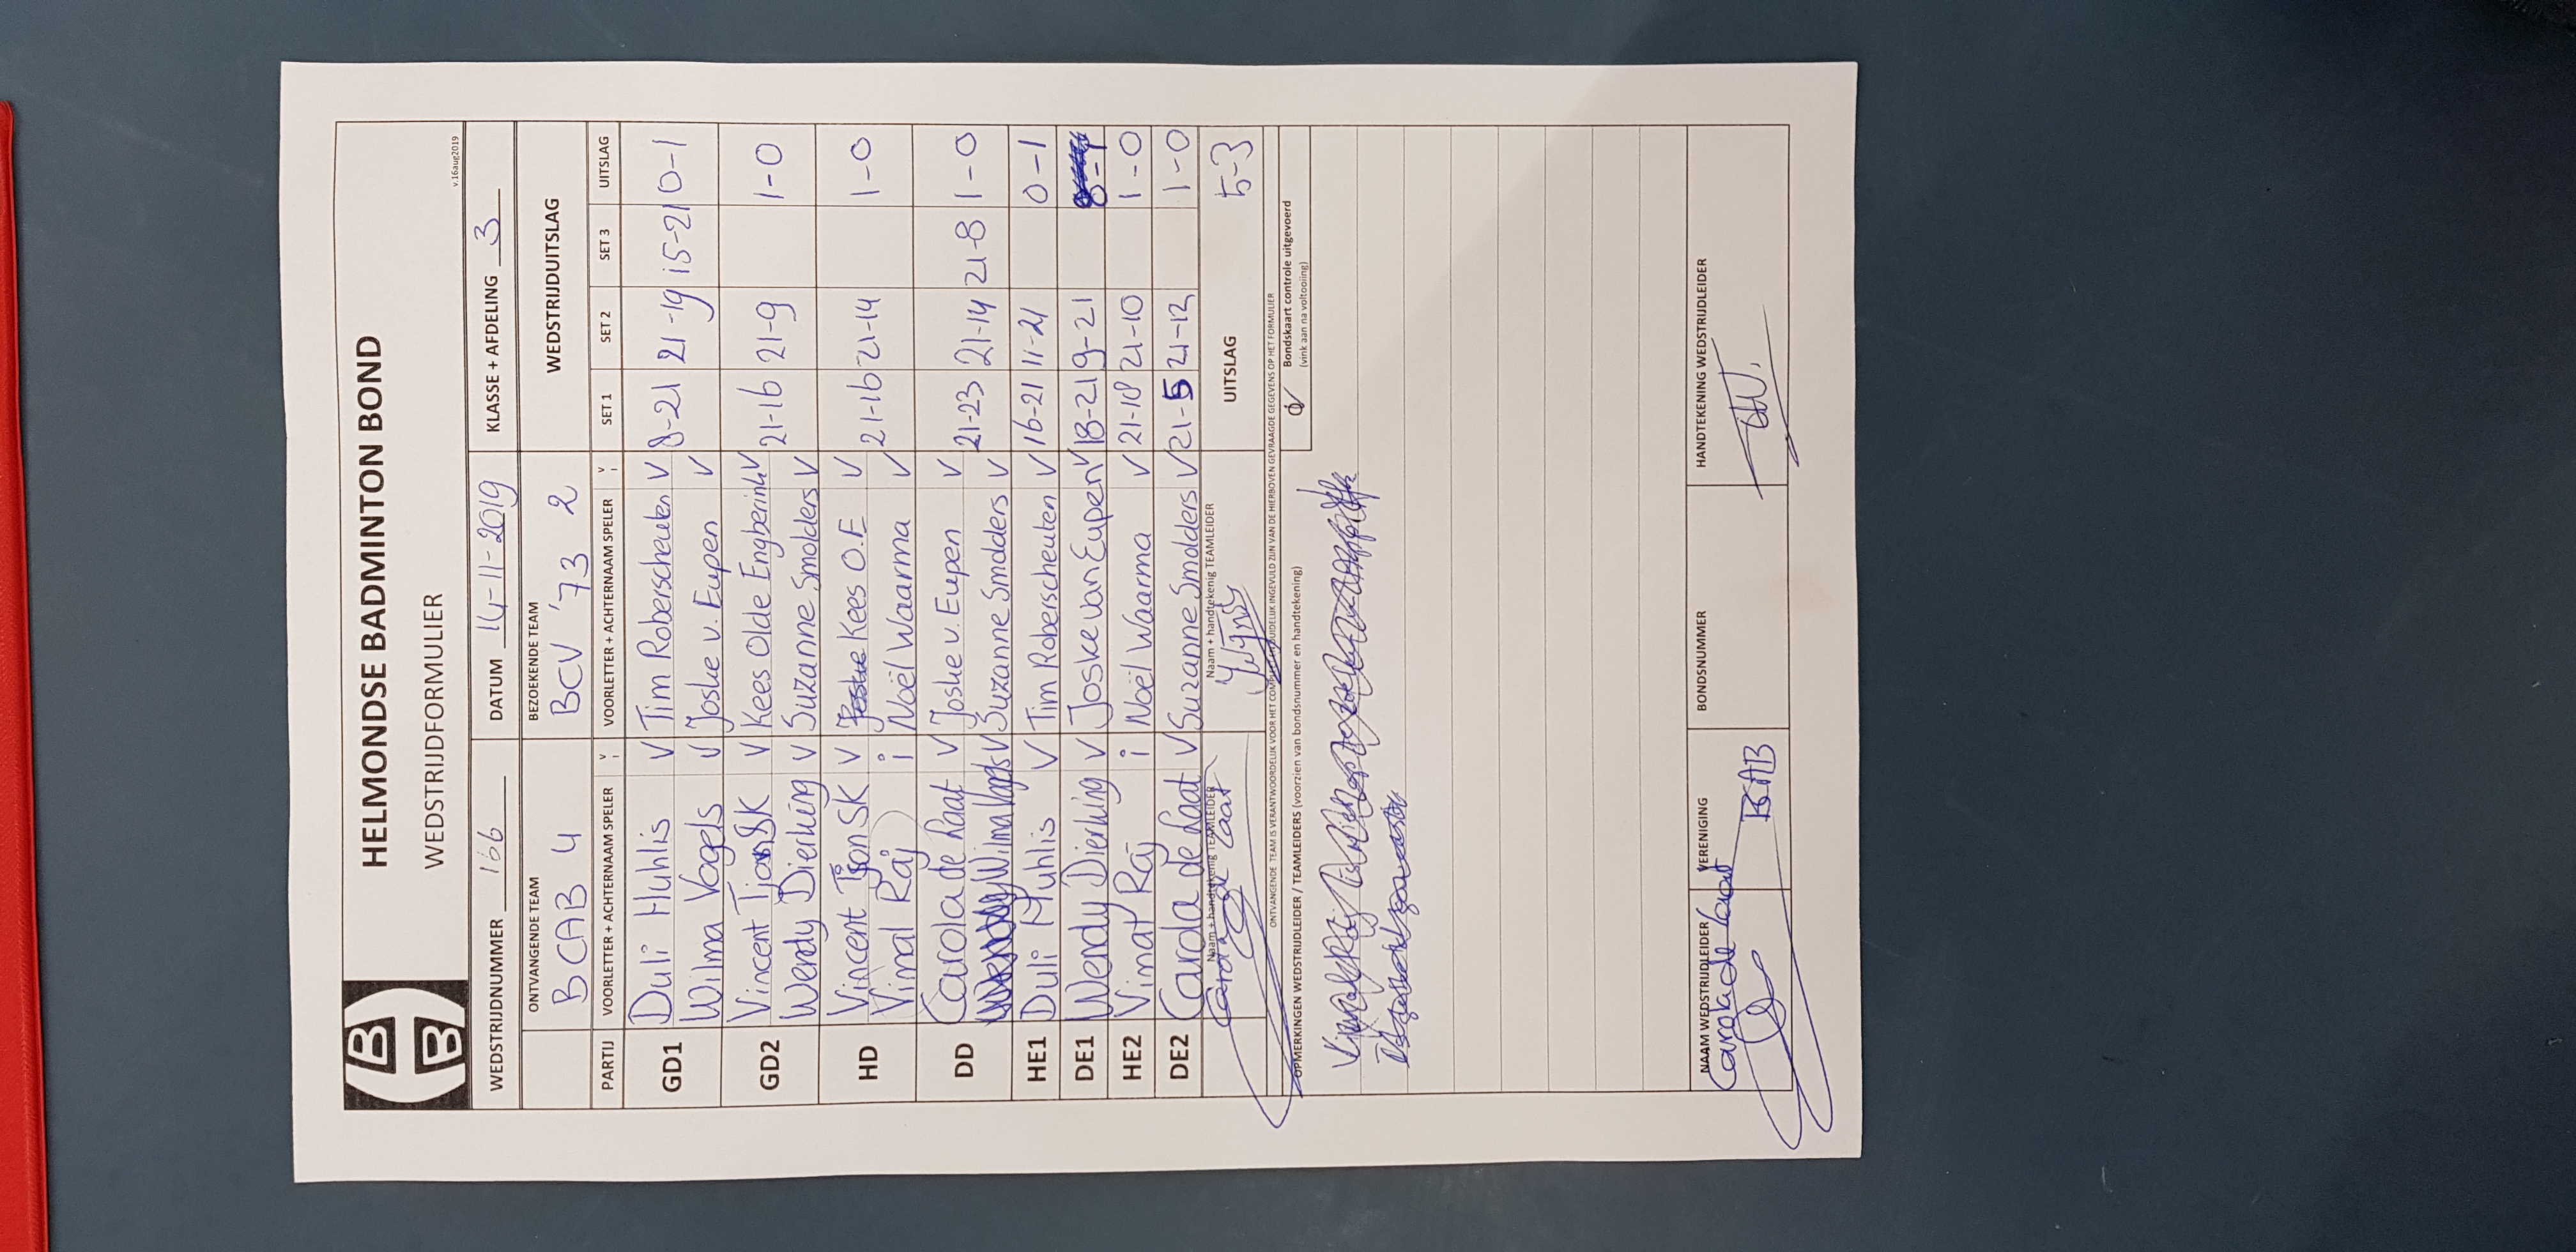 HELMONDSE BADMINTON BOND
WEDSTRIJDFORMULIER
v.16aug2019
WEDSTRIJDNUMMER 166 DATUM 14-11-2019 KLASSE + AFDELING 3
ONTVANGENDE TEAM BEZOEKENDE TEAM WEDSTRIJDUITSLAG
BCAB 4 BCV '73 2
PARTIJ VOORLETTER + ACHTERNAAM SPELER V i VOORLETTER + ACHTERNAAM SPELER V i SET 1 SET 2 SET 3 UITSLAG
GD1 Duli Muhlis V Tim Roberscheuten V 8-21 21-19 15-21 0-1
Wilma Vogels V Joske v. Eupen V
GD2 Vincent Tjon SK V Kees Olde Engberink V 21-16 21-9 1-0
Wendy Dierking V Suzanne Smolders V
HD Vincent Tjon SK V Kees O.E V 21-16 21-14 1-0
Vimal Raj i Noël Waarma V
DD Carola de Laat V Joske v. Eupen V 21-23 21-14 21-8 1-0
Wilma Vogels V Suzanne Smolders V
HE1 Duli Muhlis V Tim Roberscheuten V 16-21 11-21 0-1
DE1 Wendy Dierking V Joske van Eupen V 18-21 9-21 0-1
HE2 Vimal Raj i Noël Waarma V 21-18 21-10 1-0
DE2 Carola de Laat V Suzanne Smolders V 21-5 21-12 1-0
Naam + handtekenig TEAMLEIDER Naam + handtekenig TEAMLEIDER UITSLAG 5-3
Carola de Laat
ONTVANGENDE TEAM IS VERANTWOORDELIJK VOOR HET COMPLEET EN DUIDELIJK INGEVULD ZIJN VAN DE HIERBOVEN GEVRAAGDE GEGEVENS OP HET FORMULIER
OPMERKINGEN WEDSTRIJDLEIDER / TEAMLEIDERS (voorzien van bondsnummer en handtekening)
Bondskaart controle uitgevoerd
(vink aan na voltooiing)
NAAM WEDSTRIJDLEIDER VERENIGING BONDSNUMMER HANDTEKENING WEDSTRIJDLEIDER
Carola de Laat BAB